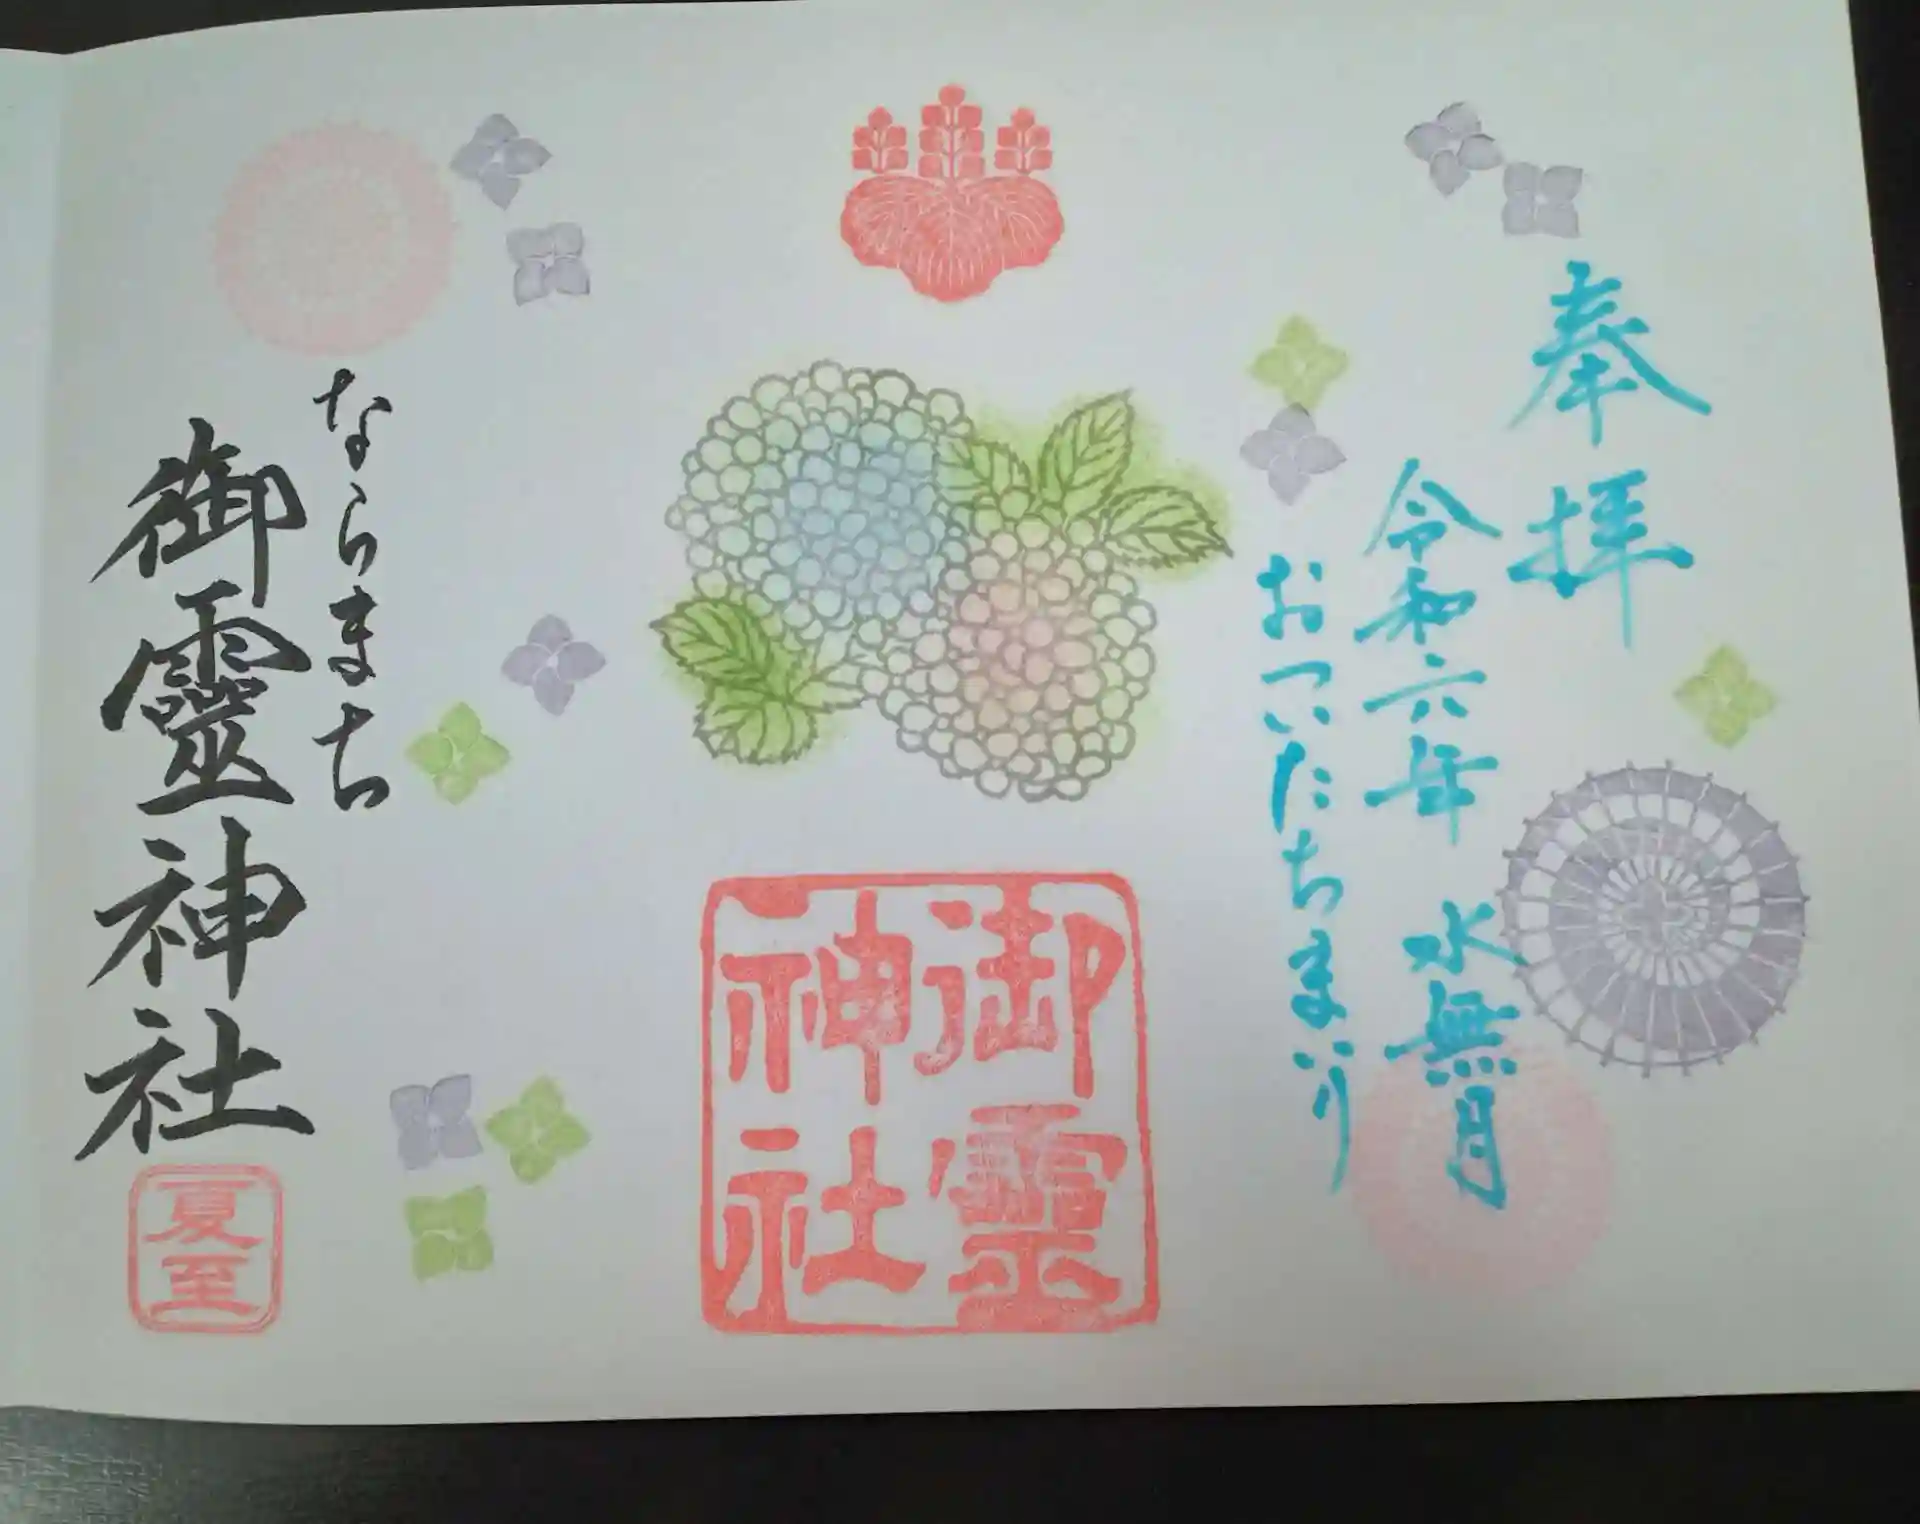 奉拝
令和六年 水無月
おついたちまいり
御靈
神社
ならまち
御靈神社
夏至